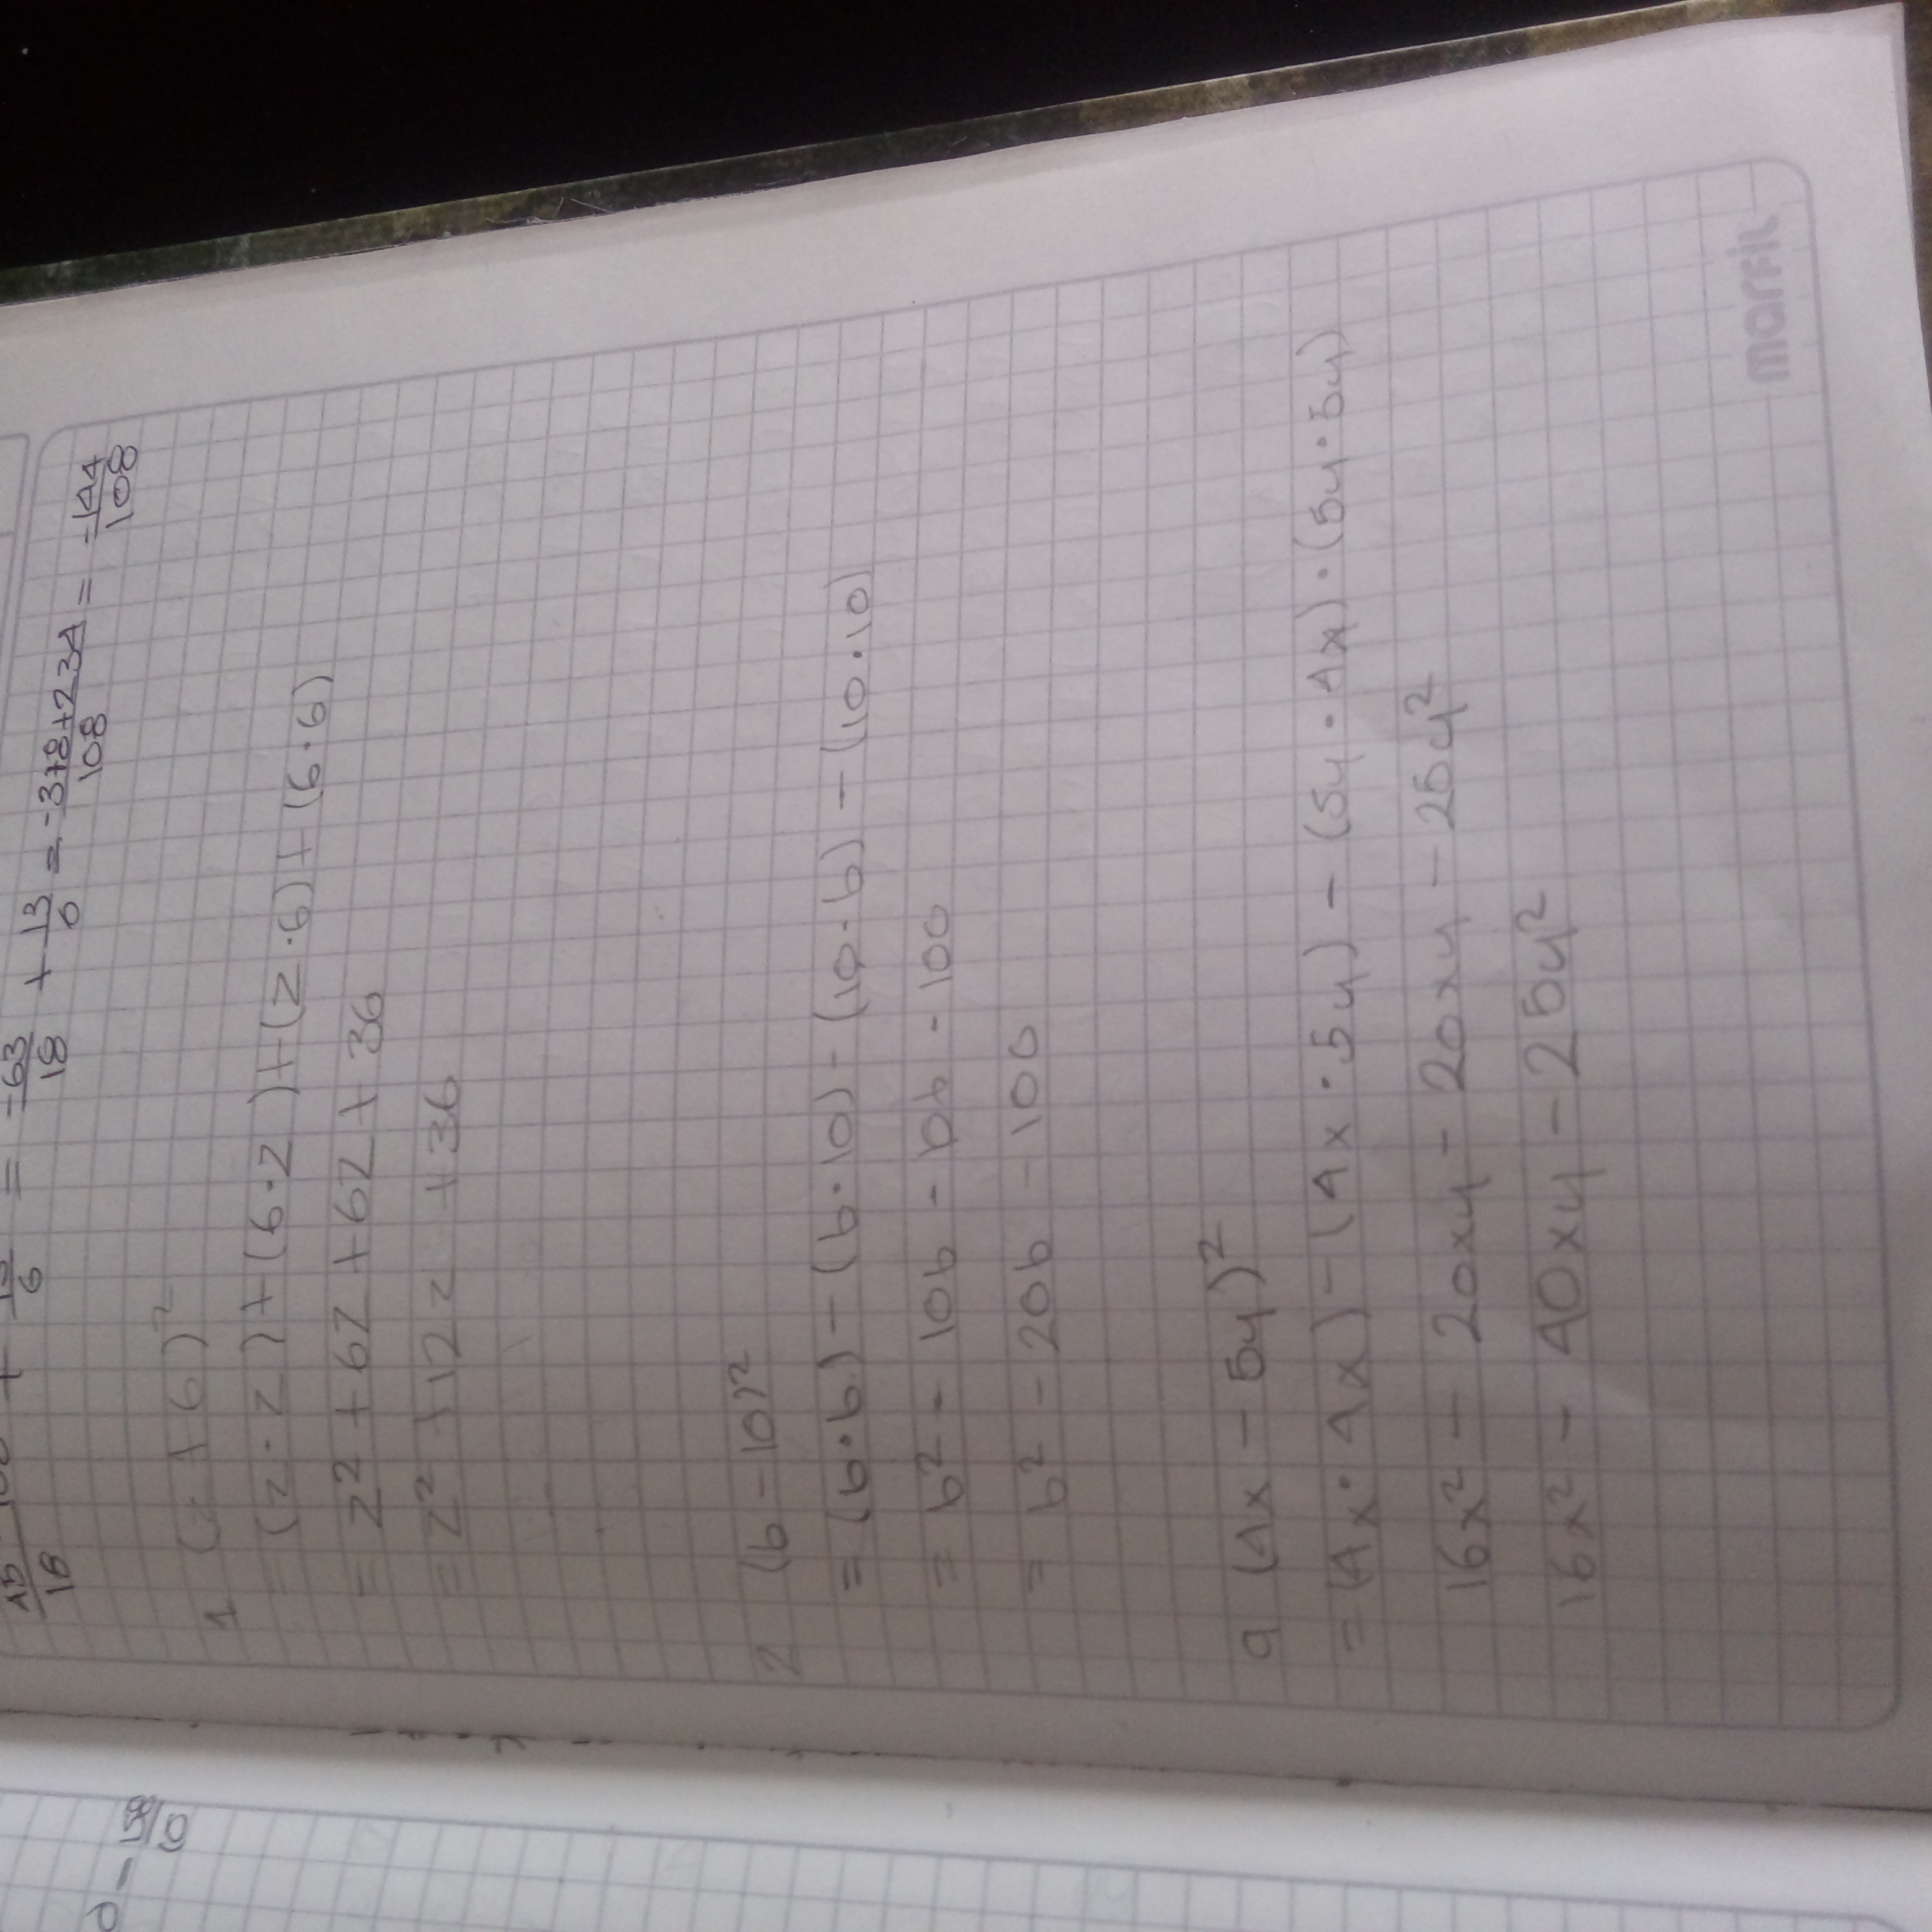 18 + 6 = -63/18 + 13/6 = -378+234/108 = -144/108
1 (z + 6)²
= (z · z) + (6 · z) + (z · 6) + (6 · 6)
= z² + 6z + 6z + 36
= z² + 12z + 36
2 (b - 10)²
= (b · b) - (b · 10) - (10 · b) - (10 · 10)
= b² - 10b - 10b - 100
= b² - 20b - 100
a (4x - 5y)²
= (4x · 4x) - (4x · 5y) - (5y · 4x) · (5y · 5y)
16x² - 20xy - 20xy - 25y²
16x² - 40xy - 25y²
marfil